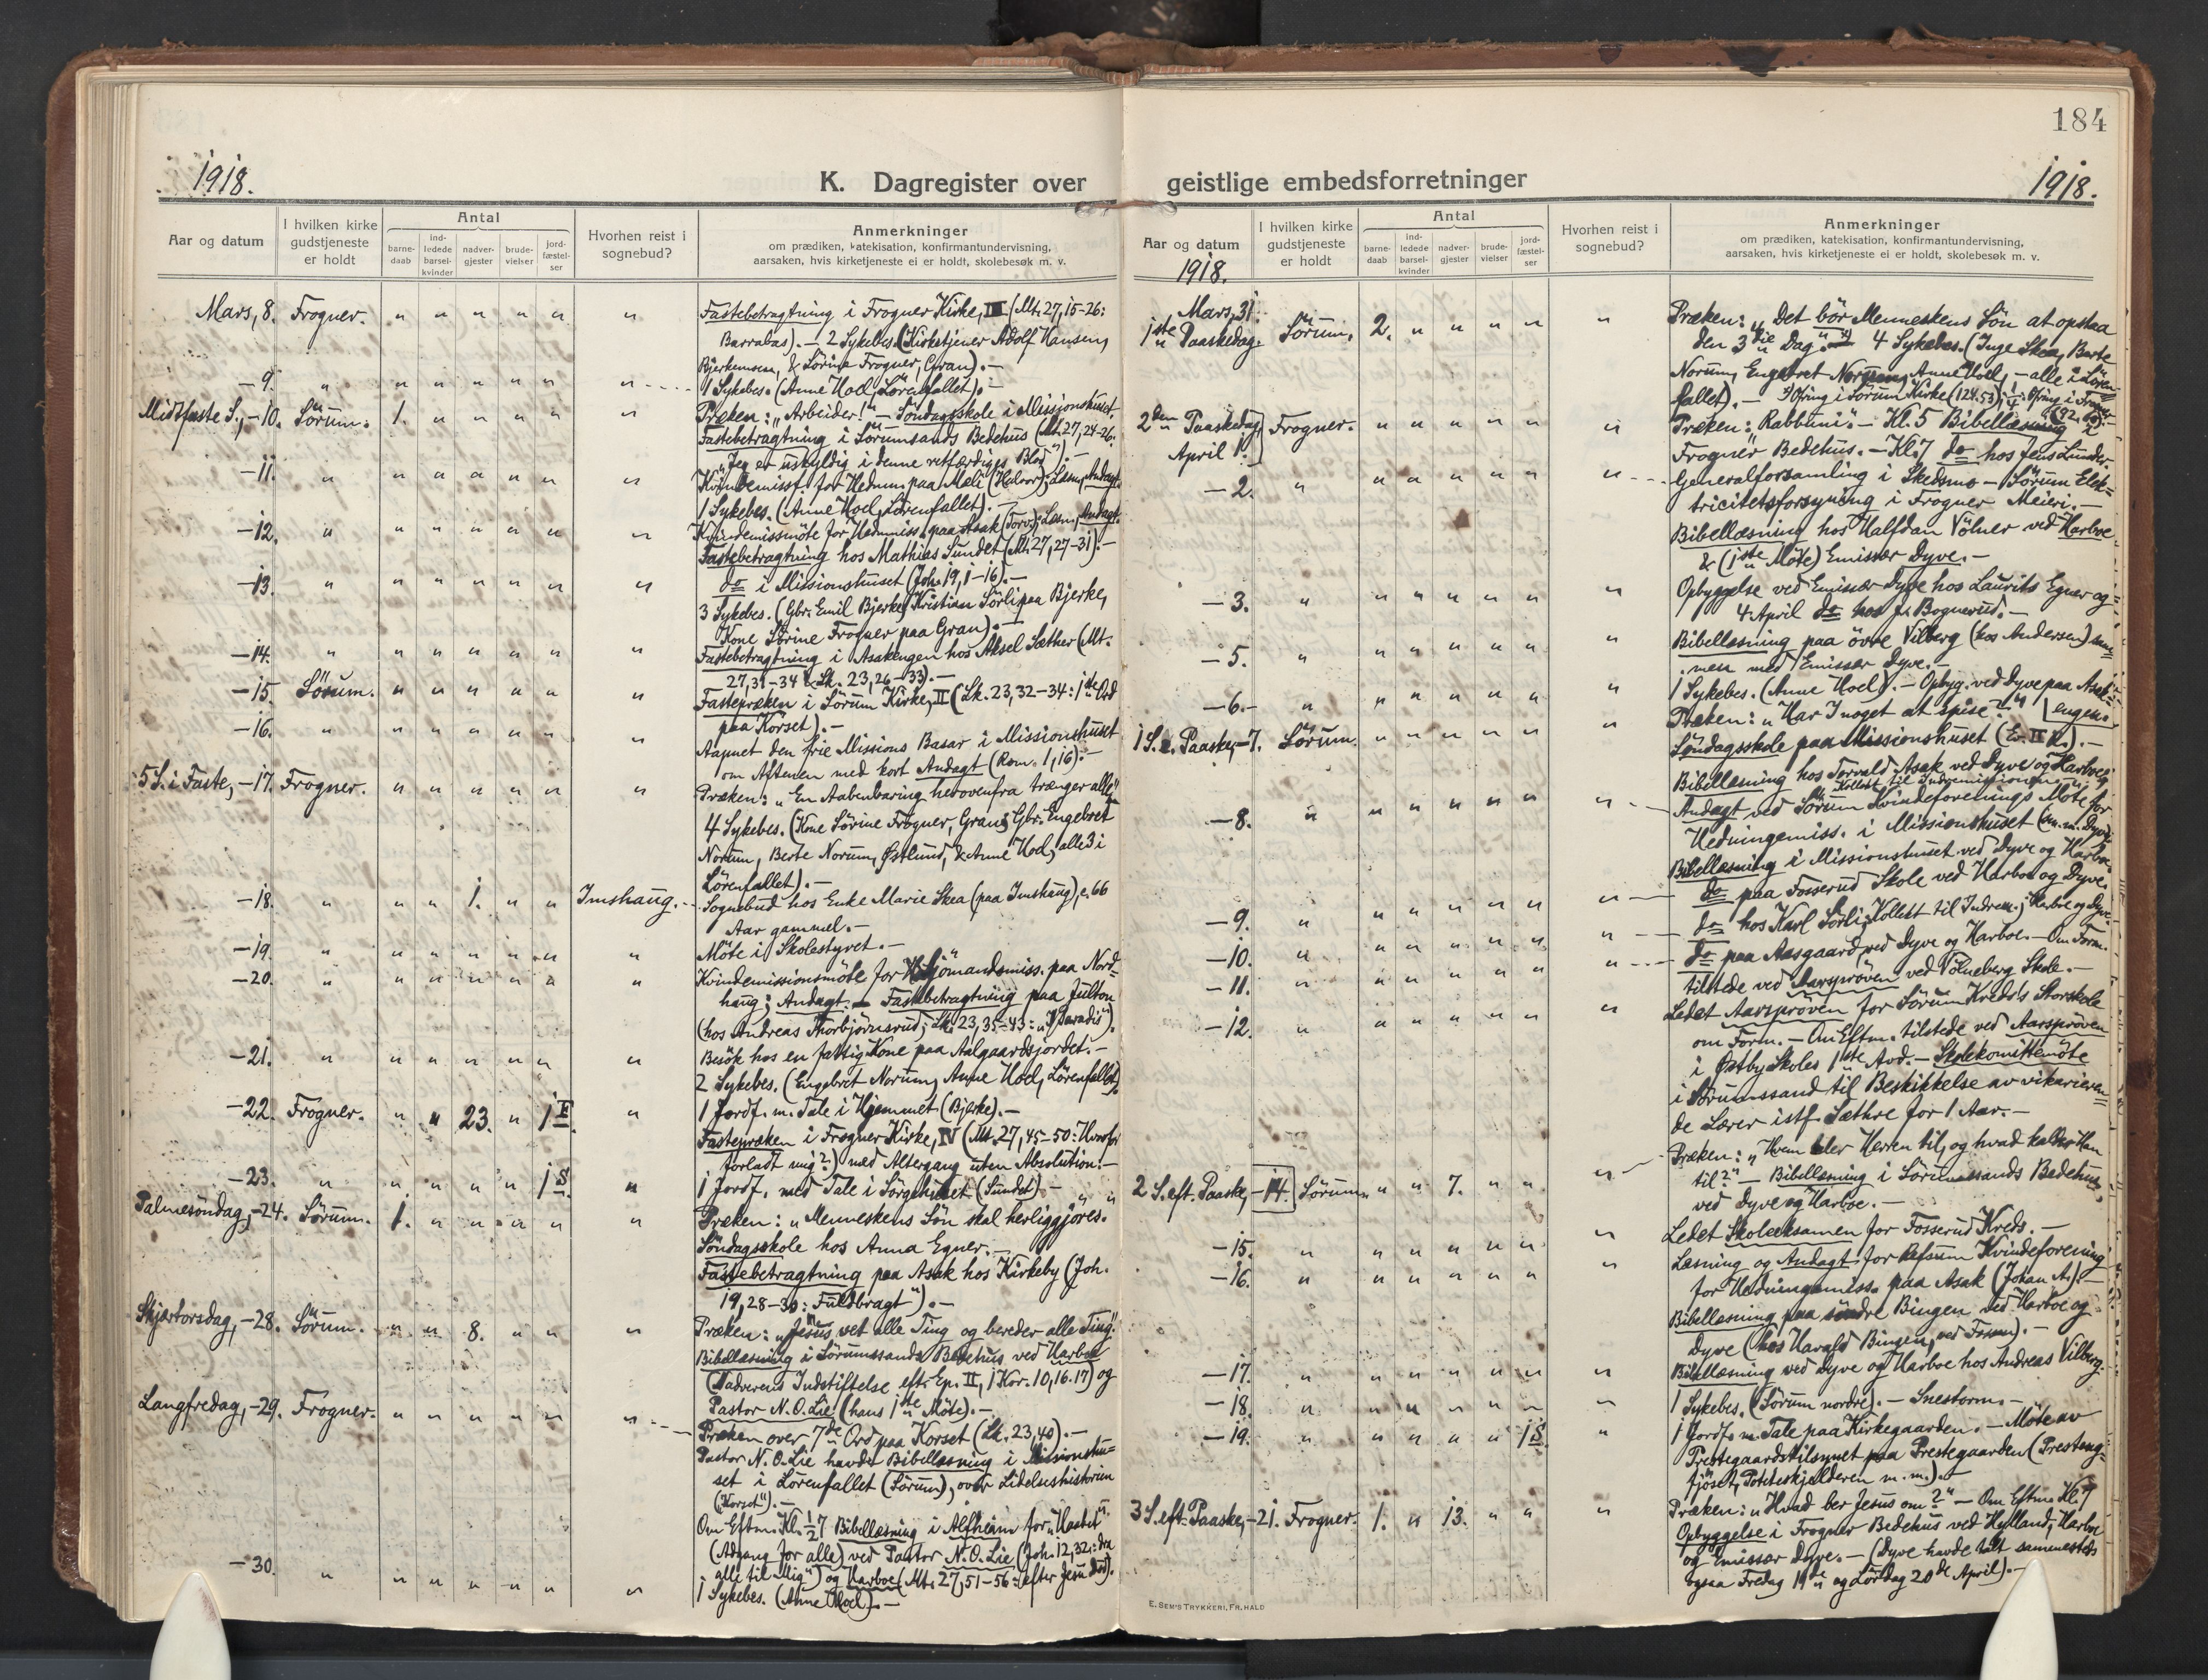 184
1918.
K. Dagregister over geistlige embedsforretninger
1918.
Aar og datum
I hvilken kirke gudstjeneste er holdt
Antal
barne-daab
ind-ledede barsel-kvinder
nadver-gjester
brude-vielser
jord-fæstel-ser
Hvorhen reist i sognebud?
Anmerkninger
om prædiken, katekisation, konfirmantundervisning,
aarsaken, hvis kirketjeneste ei er holdt, skolebesøk m. v.
Mars, 8. Frogner. " " " " " " Fastebetragtning i Frogner Kirke, III (Mt. 27, 15-26:
Barrabas). — 2 Sykebes. (Kirketjener Adolf Hansen,
& Sörine Frogner, Gran). —
— 9. " " " " " " " 1 Sykebes. (Anne Hoel, Lörenfallet). —
Midtfaste S., — 10. Sörum. 1. " " " " " Præken: „Arbeider!" — Söndagsskole i Missionshuset.
Fastebetragtning i Sörumsands Bedehus (Mt. 27, 24-26.
„Jeg er uskyldig i denne retfærdiges Blod"). —
— 11. " " " " " " " Kvindemissf. for Hedn.m. paa Mæli (Halvor); Læsn., Andagt.
1 Sykebes. (Anne Hoel, Lörenfallet). —
— 12. " " " " " " " Kvindemissmöte for Hednmiss. paa Asak (Torv.); Læsn., Andagt.
Fastebetragtning hos Mathias Sundet (Mt. 27, 27-31). —
— 13. " " " " " " " do i Missionshuset (Joh. 19, 1-16). —
3 Sykebes. (Gbr. Emil Bjerke, Kristian Sörli paa Bjerke,
Kone Sörine Frogner paa Gran). —
— 14. " " " " " " " Fastebetragtning i Asakengen hos Aksel Sæther (Mt.
27, 31-34 & Lk. 23, 26-33). —
— 15. Sörum. " " " " " " Fastepræken i Sörum Kirke, II (Lk. 23, 32-34: 1ste Ord
paa Korset). —
— 16. " " " " " " " Aapnet den frie Missions Basar i Missionshuset
om Aftenen med kort Andagt (Rom. 1, 16). —
5 S. i Faste, — 17. Frogner. " " " " " " Præken: „En Aabenbaring herovenfra trænger alle".
4 Sykebes. (Kone Sörine Frogner, Gran; Gbr. Engebret
Norum, Berte Norum, Østlund, & Anne Hoel, alle 3 i
Lörenfallet). —
— 18. " " " 1. " " Imshaug. — Sognebud hos Enke Marie Skea (paa Imshaug), c. 66
Aar gammel. —
— 19. " " " " " " " Möte i Skolestyret. —
— 20. " " " " " " " Kvindemissionsmöte for Sjömandsmiss. paa Nord-
haug; Andagt. — Fastebetragtning paa Julton
(hos Andreas Thorbjörnsrud; Lk. 23, 35-43: „I Paradis").
— 21. " " " " " " " Besök hos en fattig Kone paa Aalgaardsjordet. —
2 Sykebes. (Engebret Norum, Anne Hoel, Lörenfallet).
— 22. Frogner. " " 23. " 1 F. " 1 Jordf. m. Tale i Hjemmet (Bjerke). —
Fastepræken i Frogner Kirke, IV (Mt. 27, 45-50: Hvorfor
forladt mig?) med Altergang uten Absolution. —
— 23. " " " " " 1 S. " 1 Jordf. med Tale i Sörgehuset (Sundet). —
Palmesöndag, — 24. Sörum. 1. " " " " " Præken: „Menneskens Sön skal herliggjöres."
Söndagsskole hos Anna Egner. —
Fastebetragtning paa Asak hos Kirkeby (Joh.
19, 28-30: Fuldbragt"). —
Skjærtorsdag, — 28. Sörum. " " 8. " " " Præken: „Jesus vet alle Ting og bereder alle Ting."
Bibellæsning i Sörumssands Bedehus ved Harboe
(Nadverens Indstiftelse eftr. Ep. II, 1 Kor. 10, 16. 17) og
Pastor N. O. Lie (hans 1ste Möte). —
Langfredag, — 29. Frogner. " " " " " " — Præken over 7de Ord paa Korset (Lk. 23, 46). —
Pastor N. O. Lie havde Bibellæsning i Missionshu-
set i Lörenfallet (Sörum), over Lidelseshistorien
(„Korset"). —
Om Eftm. Kl. ½ 7 Bibellæsning i Alfheim for „Haabet"
(Adgang for alle) ved Pastor N. O. Lie (Joh. 12, 32: dra
alle til Mig") og Harboe (Mt. 27, 51-56: efter Jesu Död).
— 30. " " " " " " " 1 Sykebes. (Anne Hoel). —
E. SEM'S TRYKKERI, FR.HALD
Aar og datum
1918.
I hvilken kirke gudstjeneste er holdt
Antal
barne-daab
ind-ledede barsel-kvinder
nadver-gjester
brude-vielser
jord-fæstel-ser
Hvorhen reist i sognebud?
Anmerkninger
om prædiken, katekisation, konfirmantundervisning,
aarsaken, hvis kirketjeneste ei er holdt, skolebesøk m. v.
Mars, 31.
1ste Paaskedag. Sörum. 2. " " " " " Præken: „Det bör Menneskens Sön at opstaa
den 3die Dag." — 4 Sykebes. (Inge Skea, Berte
Norum, Engebret Norum, Anne Hoel, — alle i Lören-
fallet). — Ofring i Sörum Kirke (124.53);
2den Paaskedag, April 1. Frogner. " " " " " " Præken: „Rabbuni". — Kl. 5 Bibellæsning i
Frogner Bedehus. — Kl. 7 do hos Jens Lunder.
— 2. " " " " " " " — Generalforsamling i Skedsmo — Sörum Elek-
tricitetsforsyning i Frogner Meieri. —
Bibellæsning hos Halfdan Völner ved Harboe
& (1ste Möte) Emissær Dyve. —
— 3. " " " " " " " Opbyggelse ved Emissær Dyve hos Laurits Egner og
4 April do hos J. Bognerud. —
— 5. " " " " " " " Bibellæsning paa övre Vilberg (hos Andersen) sam-
men med Emissær Dyve. —
— 6. — " " " " " " " 1 Sykebes. (Anne Hoel). — Opbyg. ved Dyve paa Asak-
engen.
1 S. e. Paaske, — 7. Sörum. " " " " " " Præken: „Har I noget at spise?"
Söndagsskole paa Missionshuset (E. II R.). —
Bibellæsning hos Torvald Asak ved Dyve og Harboe;
Kollekt til Indremissionen.
— 8. " " " " " " " — Andagt ved Sörum Kvindeforenings Möte for
Hedningemiss. i Missionshuset (m. m. Dyve).
Bibellæsning i Missionshuset ved Dyve og Harboe.
— 9. " " " " " " " — do paa Fosserud Skole ved Harboe og Dyve.
— 10. " " " " " " " — do hos Karl Sörli; Kollekt til Indrem.; Harboe og Dyve.
— 11. " " " " " " " — do paa Aasgaard ved Dyve og Harboe. — Om Form.
tilstede ved Aarspröven ved Völneberg Skole. —
— 12. " " " " " " " Ledet Aarspröven for Sörum Kreds's Storskole
om Form. — Om Eftm. tilstede ved Aarspröven
i Østby Skoles 1ste Avd. — Skolekomitemöte
i Sörumssand til Beskikkelse av vikarieren-
de Lærer istf. Sæthre for 1 Aar. —
2 S. eft. Paaske, — 14. Sörum. " " 7. " " " — Præken: „Hvem taler Herren til, og hvad kalder Han
til?" — Bibellæsning i Sörumssands Bedehus
ved Dyve og Harboe. —
— 15. " " " " " " " Ledet Skoleeksamen for Fosserud Kreds. —
— 16. " " " " " " " Læsning og Andagt for Refsum Kvindeforening
for Hedningemiss. paa Asak (Johan A.). —
Bibellæsning paa söndre Bingen ved Harboe og
Dyve (hos Harald Bingen, ved Fossum). —
— 17. " " " " " " " Bibellæsning ved Dyve og Harboe hos Andreas Vilberg.
— 18. " " " " " " " 1 Sykebes. (Sörum nordre). — Snestorm. —
— 19. " " " " " 1 S. " 1 Jordf. m. Tale paa Kirkegaarden. — Möte av
Prestegaardstilsynet paa Prestegaarden (Presteng-
fjöset, Potetskjelderen m. m.). —
3 S. eft. Paaske, — 21. Frogner. 1. " 13. " " " Præken: „Hvad ber Jesus om?" — Om Eftm. Kl. 7
Opbyggelse i Frogner Bedehus ved Hylland, Harboe
og Emissær Dyve. — (Dyve havde talt sammesteds
ogsaa Fredag 19de og Lördag 20de April). —